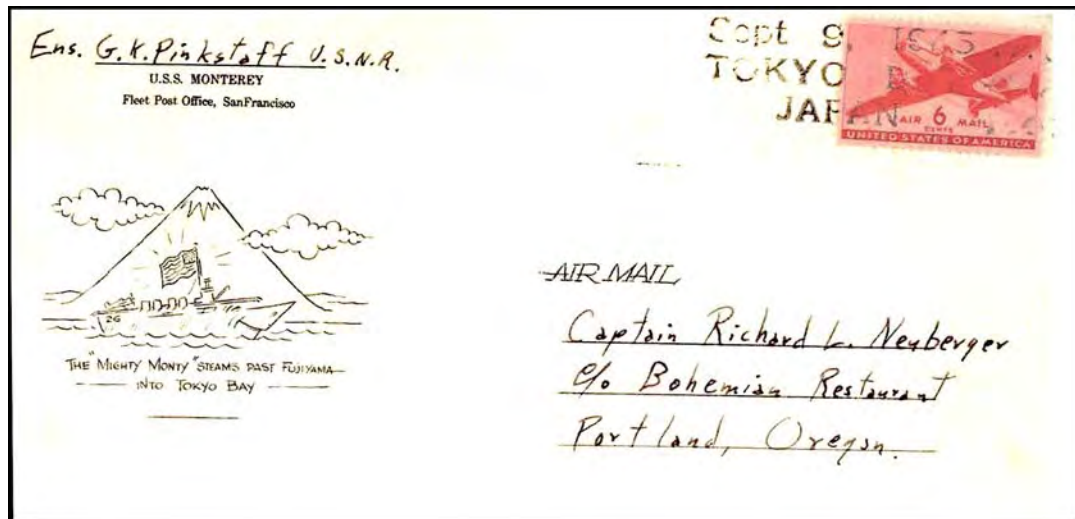 Ens. G.K. Pinkstaff U.S.N.R.
U.S.S. MONTEREY
Fleet Post Office, SanFrancisco
Sept 9, 1945
TOKYO B
JAPAN
AIR 6 MAIL
CENTS
UNITED STATES OF AMERICA
26
THE "MIGHTY MONTY" STEAMS PAST FUJIYAMA
INTO TOKYO BAY
AIR MAIL
Captain Richard L. Neuberger
c/o Bohemian Restaurant
Portland, Oregon.